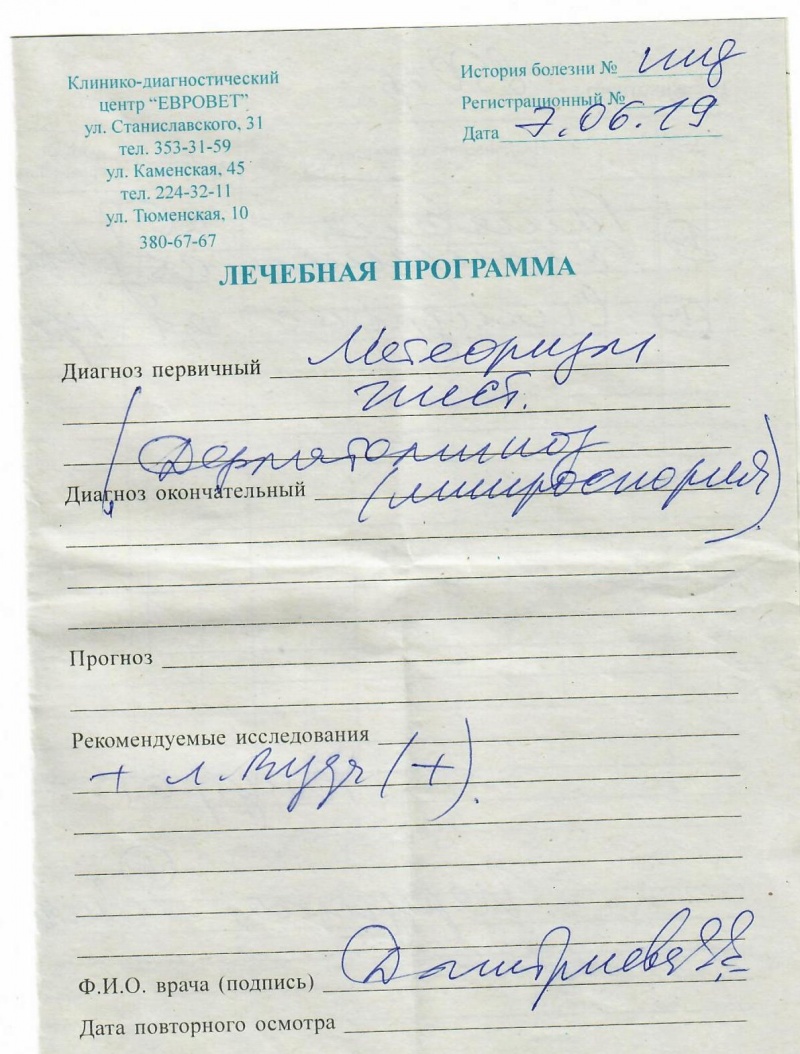 Клинико-диагностический
центр “ЕВРОВЕТ”
ул. Станиславского, 31
тел. 353-31-59
ул. Каменская, 45
тел. 224-32-11
ул. Тюменская, 10
380-67-67
История болезни №
Регистрационный №
Дата 7.06.19
ЛЕЧЕБНАЯ ПРОГРАММА
Диагноз первичный Метеоризм
(Дерматомикоз
Диагноз окончательный (микроспория)
Прогноз
Рекомендуемые исследования
+ л. Вуда (+).
Ф.И.О. врача (подпись) Дмитриева
Дата повторного осмотра